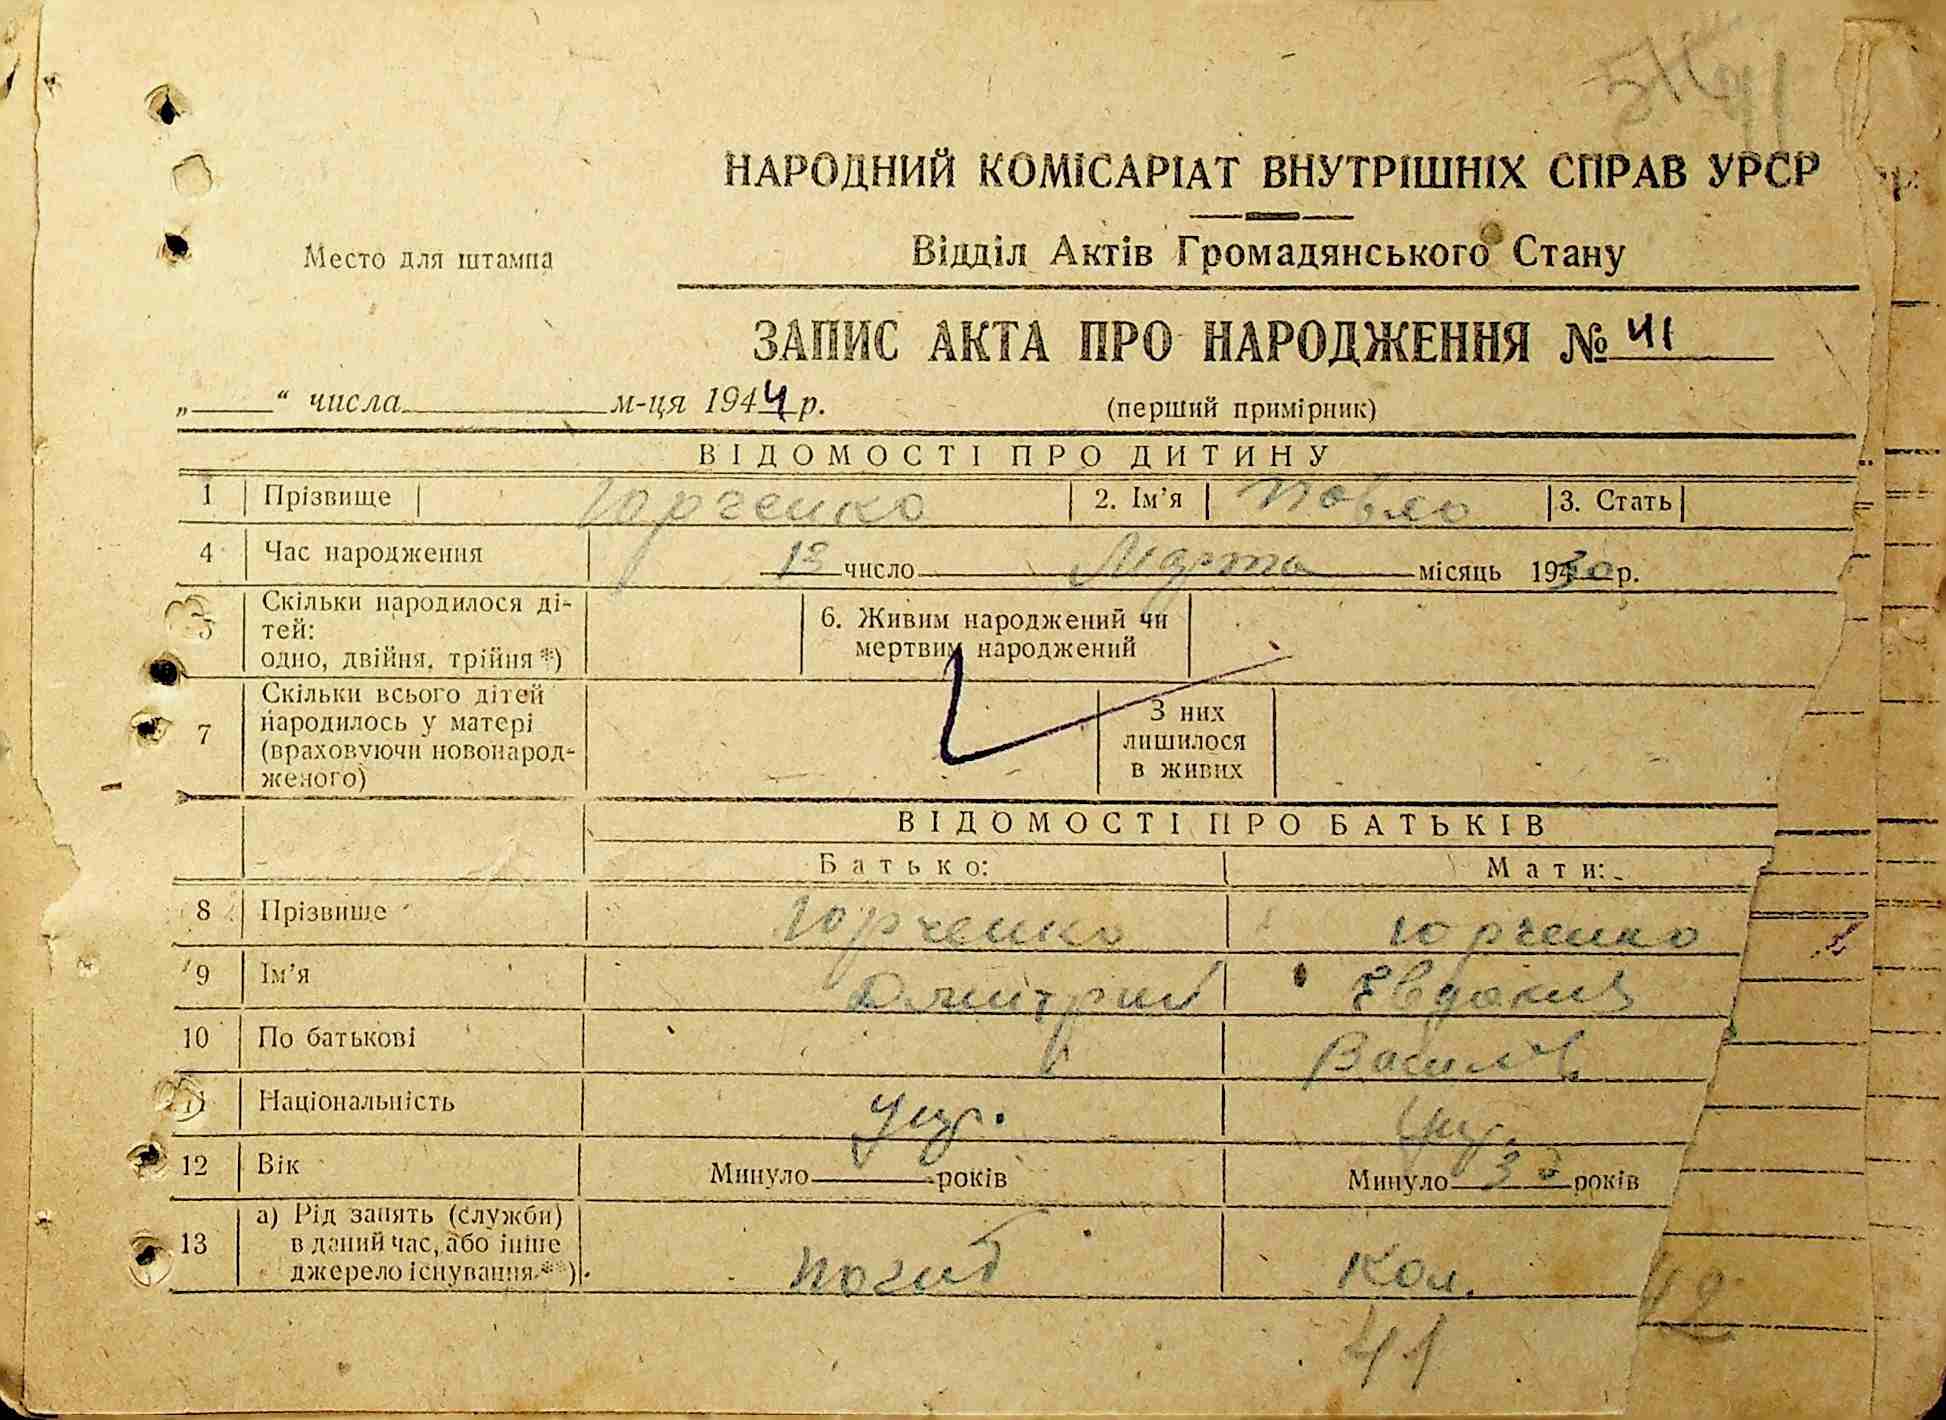 41
НАРОДНИЙ КОМІСАРІАТ ВНУТРІШНІХ СПРАВ УРСР
Место для штампа
Відділ Актів Громадянського Стану
ЗАПИС АКТА ПРО НАРОДЖЕННЯ № 41
„ “ числа м-ця 1944 р.
(перший примірник)
ВІДОМОСТІ ПРО ДИТИНУ
1 Прізвище Юрченко 2. Ім’я Повло 3. Стать
4 Час народження 13 число Марта місяць 1930 р.
5 Скільки народилося ді-
тей:
одно, двійня, трійня *)
6. Живим народжений чи
мертвим народжений
7 Скільки всього дітей
народилось у матері
(враховуючи новонарод-
женого)
З них
лишилося
в живих
ВІДОМОСТІ ПРО БАТЬКІВ
Батько: Мати:
8 Прізвище Юрченко Юрченко
9 Ім’я Дмитрий Евдокия
10 По батькові Васильв
11 Національність укр. укр.
12 Вік Минуло років Минуло 33 років
13 а) Рід занять (служби)
в даний час, або інше
джерело існування **)
погиб кол.
41
42